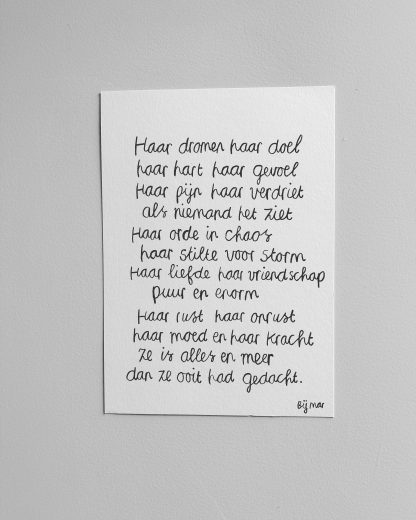 Haar dromen haar doel
haar hart haar gevoel
Haar pijn haar verdriet
als niemand het ziet
Haar orde in chaos
haar stilte voor storm
Haar liefde haar vriendschap
puur en enorm
Haar rust haar onrust
haar moed en haar kracht
Ze is alles en meer
dan ze ooit had gedacht.
Bij mar